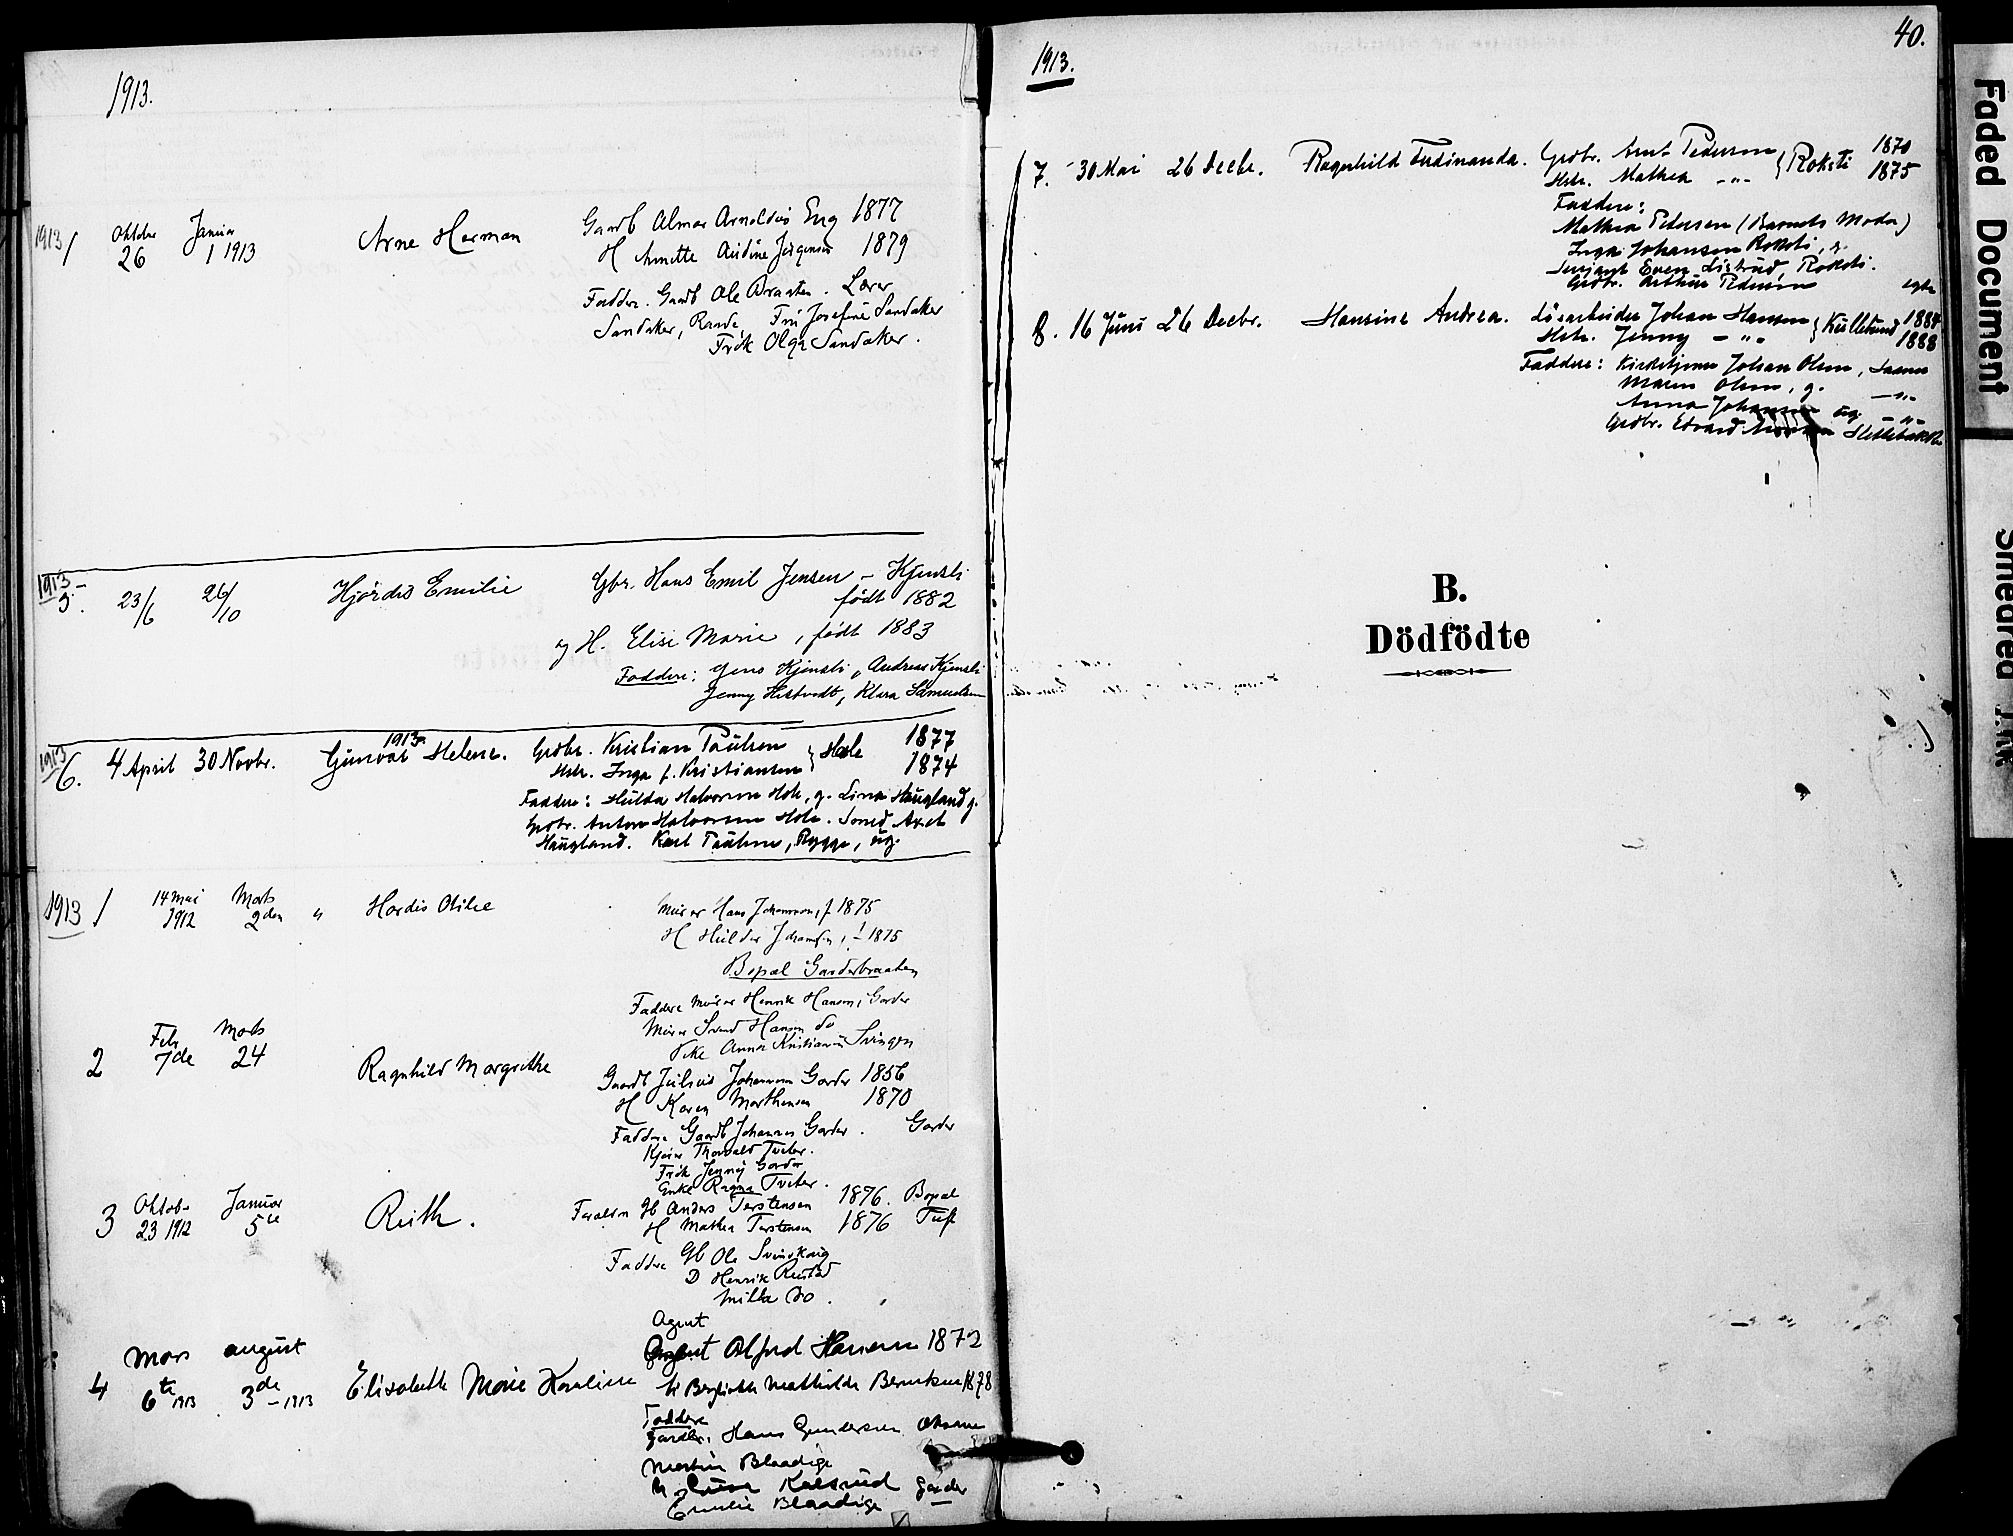 1913.
1913 1 Oktober 26 Januar 1 1913 Arne Herman Gaardb Almar Arnoldus Eng 1877
H Annette Jørgensen 1879
Faddere. Gaardb Ole Braaten. Lærer
Sandaker, Raade, Fru Josefine Sandaker
Frøk Olga Sandaker.
1913.- 5. 23/6 26/10 Hjørdis Emilie Gbr. Hans Emil Jensen - Kjensli
født 1882
og H. Elise Marie, født 1883
Faddere: Jens Kjensli, Andreas Kjensli
Jenny Hestvedt, Klara Samuelsen
1913 6. 4 April 1913 30 Novbr. Gunvor Helene. Grdbr. Kristian Paulsen } Hole 1877
Hstr. Inga f. Kristiansen 1874
Faddere: Hulda Halvorsen Hole, g. Lina Haugland g.
Grdbr. Anton Halvorsen Hole. Axel
Haugland. Karl Paulsen, Rygge, ug.
1913 1 14 mai 1912 Marts 2den " Hardis Otilie Murer Hans Johannesen, f 1875
H Hulda Johansen, f - 1875
Bopæl Garderbraaten
Faddere Murer Henrik Hansen, Garder
Murer Hansen do
Anna Kristiansen Svingen
2 Feb 7de Marts 24 Ragnhild Margrethe Gaardb Julius Johannesen Garder 1856
H Karen Marthinsen 1870
Faddere Gaardb Johannes Garder. Garder
Thorvald Tveter.
Frøk Jenny Garder
Enke Ragna Tveter.
3 Oktob- 23 1912 Januar 5te Ruth. Forældre Gb Anders Torstensen 1876. Bopæl
H Mathea Torstensen 1876 Tuft
Faddere Gb Ole Svinskaug
D Henrik Rustad
Milla Do.
Agent
4 Mars 6te 1913 august 3de - 1913 Elisabeth Marie Karoline Agent Alfred Hansen 1872
H Bergliothe Mathilde Berntsen 1878
Faddere
Gardbr. Hans Gundersen
Martin Blaadige
Kalsrud Garder
Emilie Blaadige
40.
1913.
7. 30 Mai 26 Decbr. Ragnhild Ferdinanda. Grdbr. Arnt Pedersen } Roksti 1870
Hstr. Mathea -"- 1875
Faddere:
Mathea Pedersen (Barnets Moder)
Inga Johansen Roksti, g.
Sersjant Even Listrud, Roksti.
Grdbr. Arthur Pedersen
8. 16 Juni 26 Decbr. Hansine Andrea. Løsarbeider Johan Hansen } Kullebund 1884
Hstr. Jenny -"- 1888
Faddere: Kirketjener Johan Olsen, Saaner
Maren Olsen, g. -"-
Anna Johansen ug. -"-
Grdbr. Edvard
B.
Dödfödte
Faded Document
Smeared